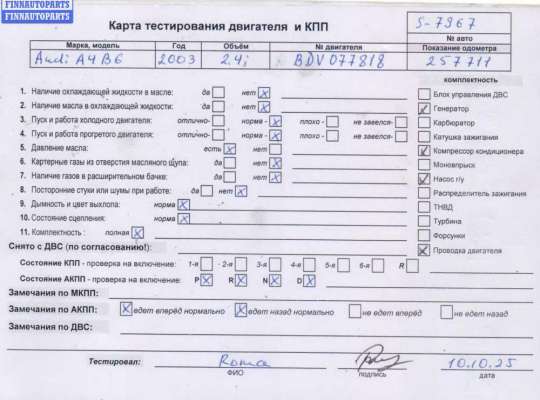 FINNAUTOPARTS
FINNAUTOPARTS
Карта тестирования двигателя и КПП
S-7967
№ авто
Марка, модель Год Объём № двигателя Показание одометра
Audi A4 B6 2003 2.4i BDV 077818 257711
комплектность
1. Наличие охлаждающей жидкости в масле: да нет X
Блок управления ДВС
2. Наличие масла в охлаждающей жидкости: да нет X
Генератор
3. Пуск и работа холодного двигателя: отлично- норма - X плохо - не завелся-
Карбюратор
4. Пуск и работа прогретого двигателя: отлично- норма - X плохо - не завелся-
Катушка зажигания
5. Давление масла: есть X нет
Компрессор кондиционера
6. Картерные газы из отверстия масляного щупа: да нет X
Моновпрыск
7. Наличие газов в расширительном бачке: да нет X
Насос г/у
8. Посторонние стуки или шумы при работе: да нет X
Распределитель зажигания
9. Дымность и цвет выхлопа: норма X
ТНВД
10. Состояние сцепления: норма X
Турбина
11. Комплектность : полная X
Форсунки
Снято с ДВС (по согласованию!):
Проводка двигателя
Состояние КПП - проверка на включение: 1-я - 2-я 3-я 4-я 5-я 6-я R
Состояние АКПП - проверка на включение: P X R X N X D X
Замечания по МКПП:
Замечания по АКПП: X едет вперёд нормально X едет назад нормально не едет вперёд не едет назад
Замечания по ДВС:
Тестировал: Roma 10.10.25
ФИО подпись дата